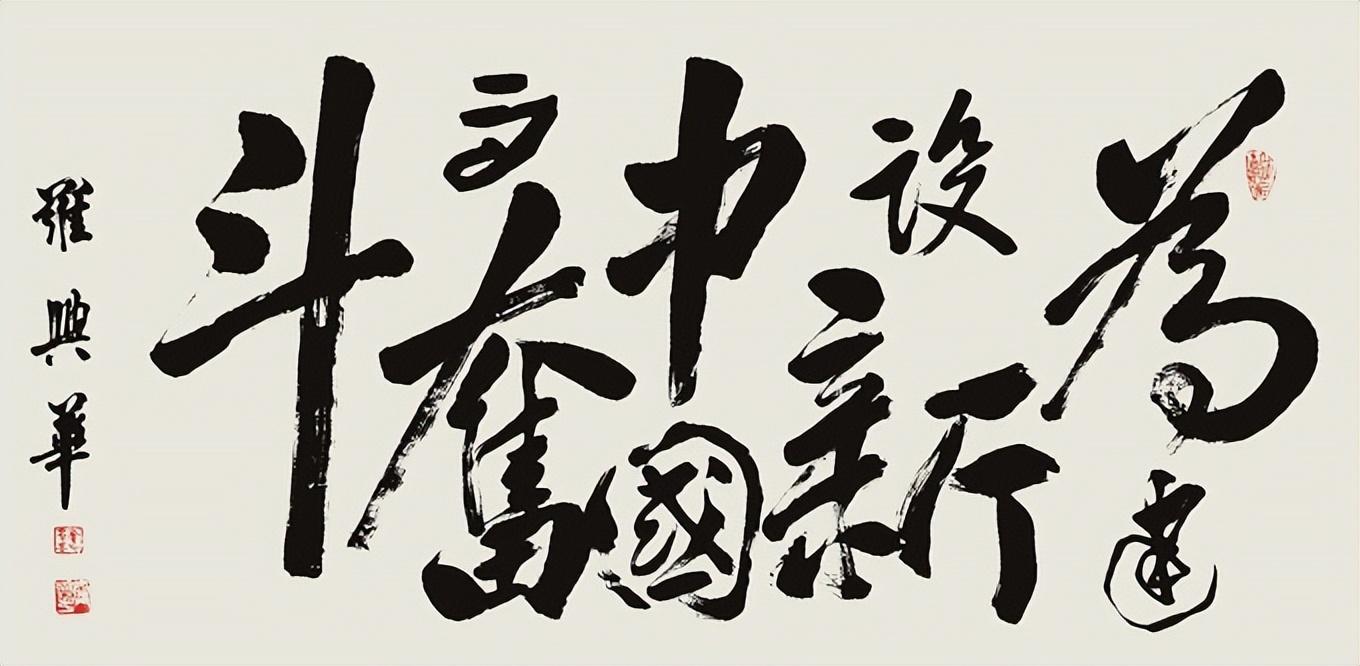 為建
设新
中國
而奮
斗
羅興華